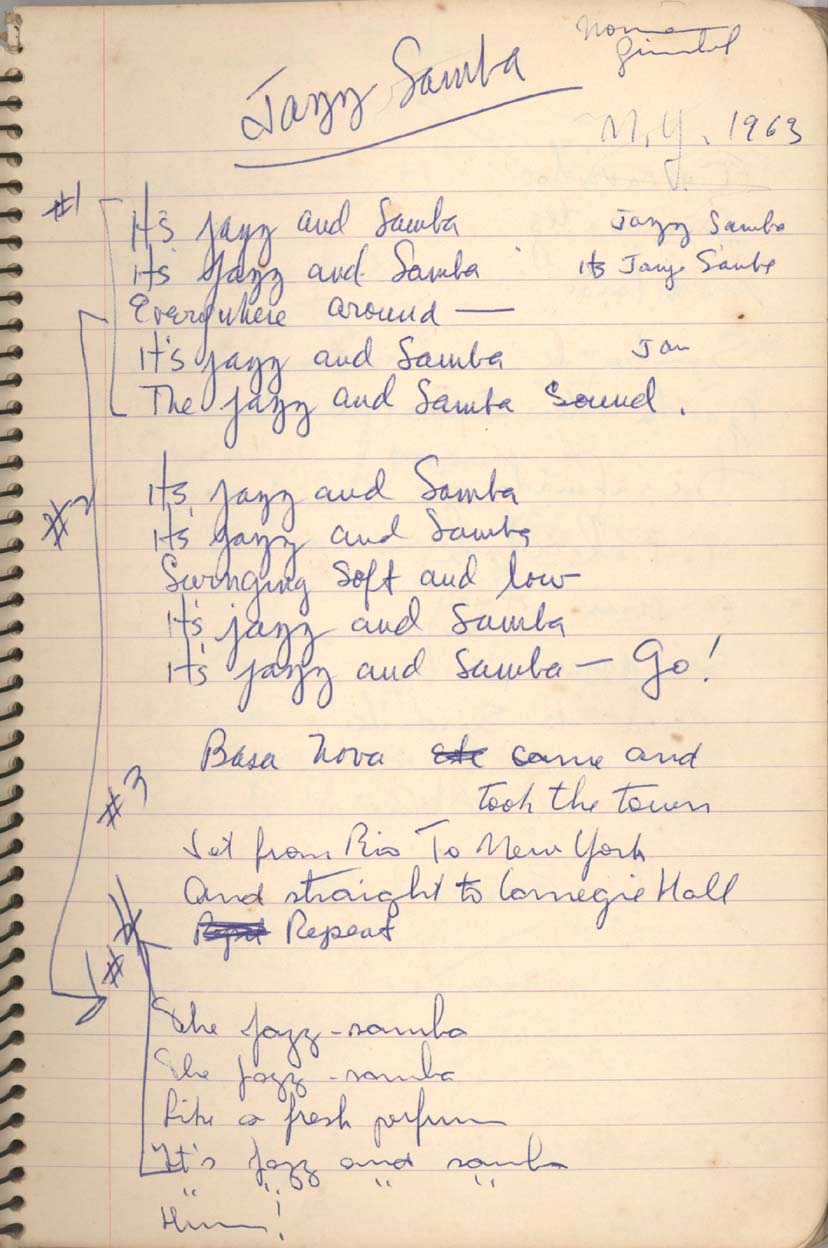 Norman
Gimbel
Jazz Samba
N.Y. 1963
#1
It's jazz and Samba Jazz Samba
It's Jazz and Samba Its Jazz Samba
Everywhere around —
It's jazz and Samba Jazz
The jazz and Samba Sound.
#2
It's jazz and Samba
It's jazz and Samba
Swinging Soft and low
It's jazz and Samba
It's jazz and Samba — Go!
#3
Basa Nova came and
took the town
Jet from Rio To New York
And straight to Carnegie Hall
Repeat
#1
The jazz-samba
The jazz-samba
Like a fresh perfum
It's jazz and samba
" " " "
Hum!